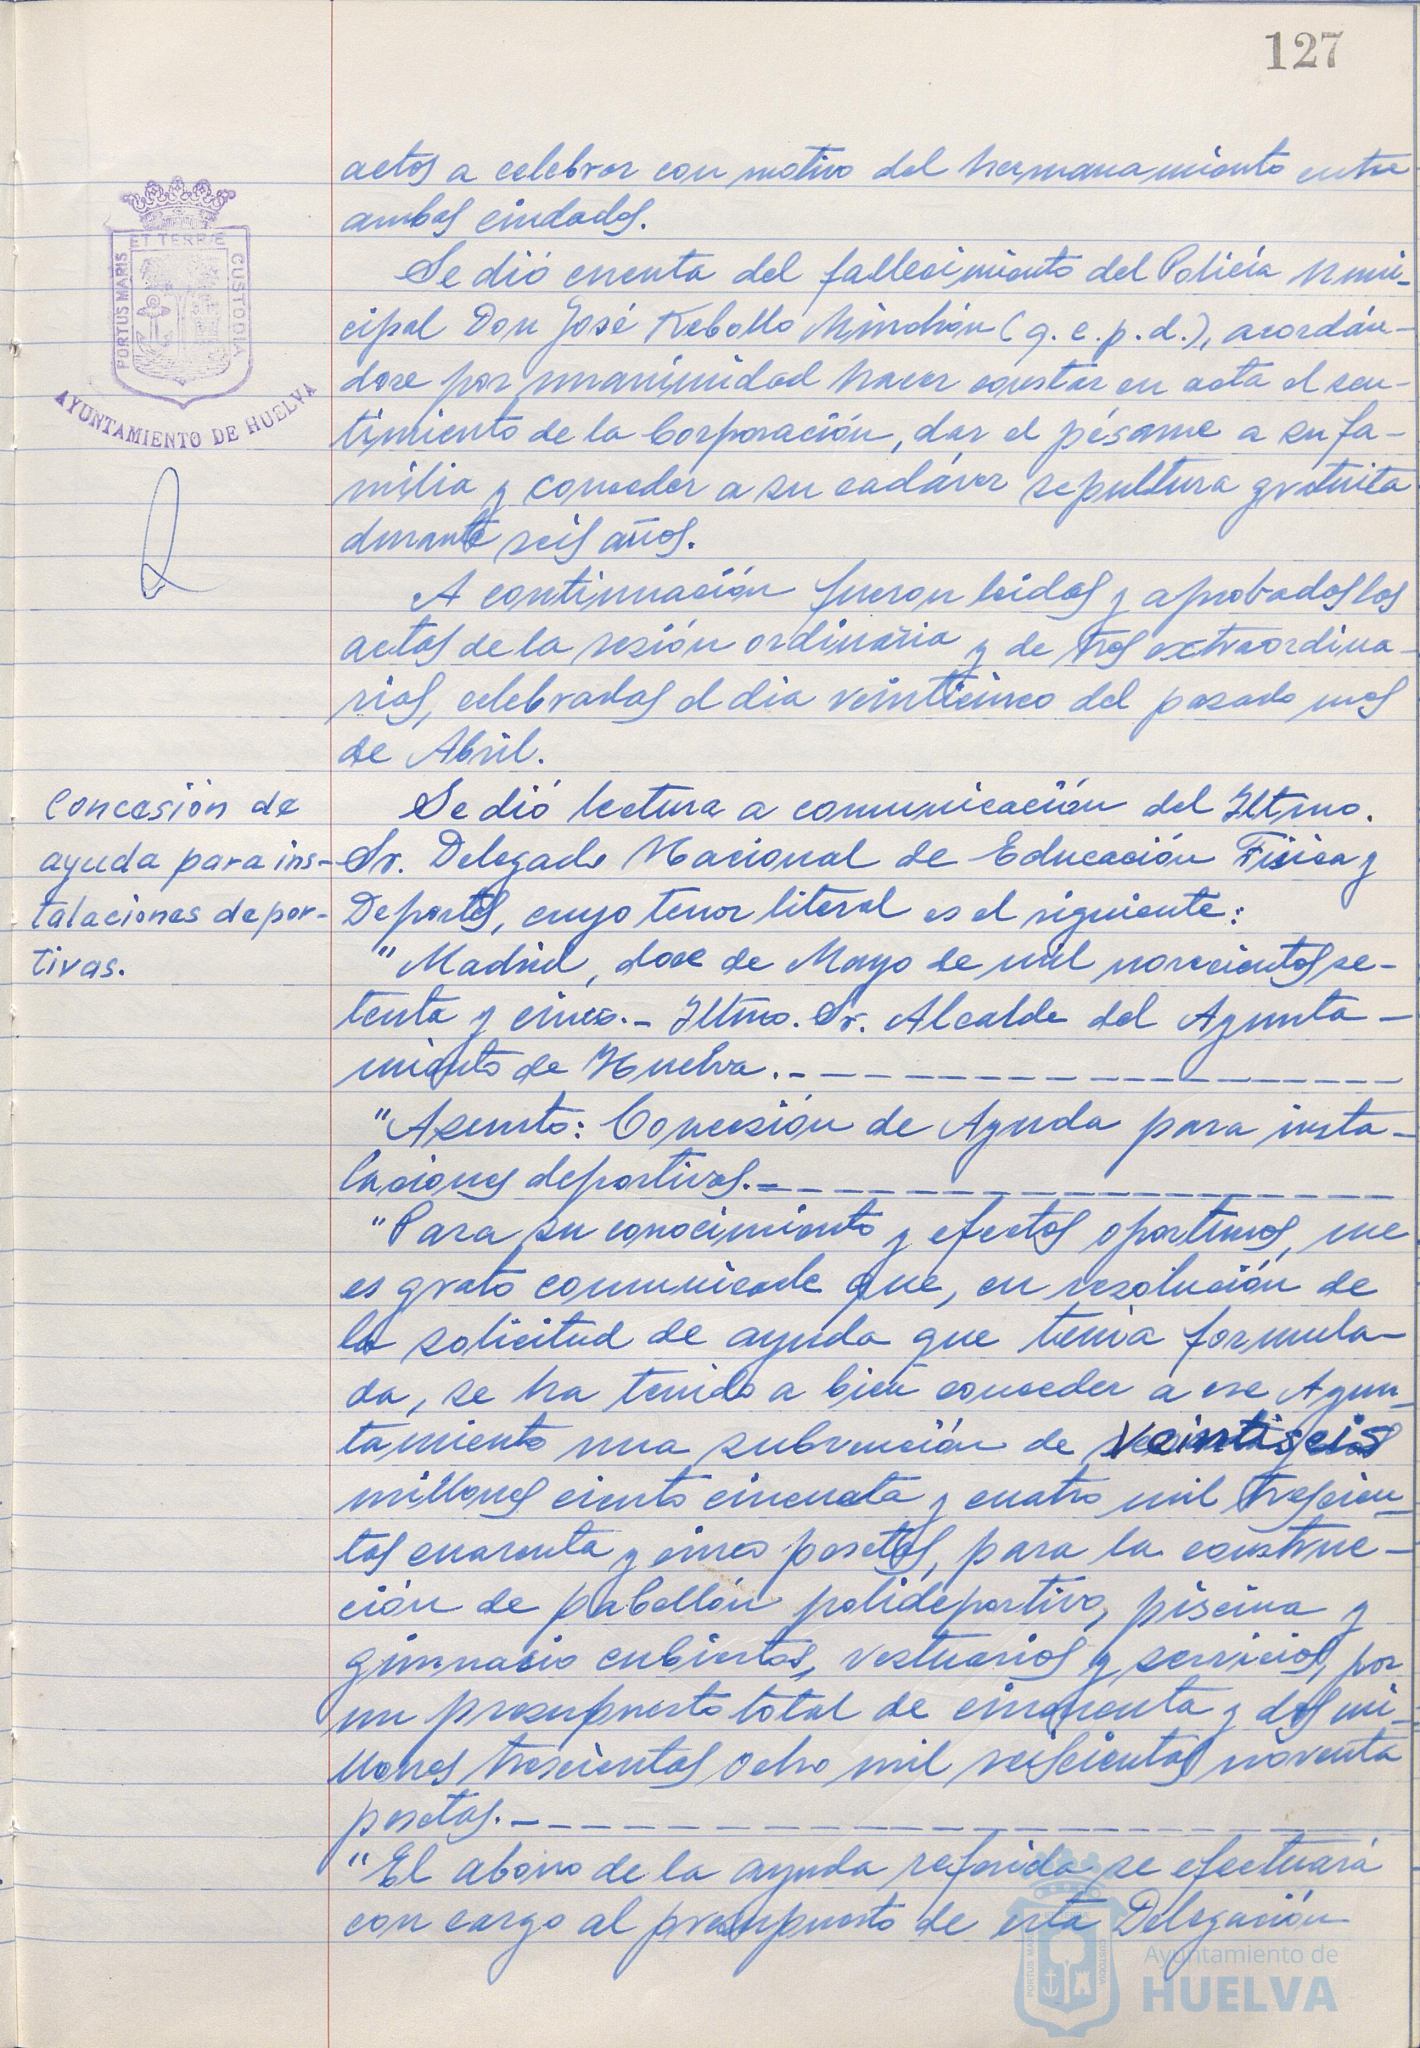 127
actos a celebrar con motivo del hermanamiento entre
ambas ciudades.
Se dió cuenta del fallecimiento del Policía Muni-
cipal Don José Rebollo (q. e. p. d.), acordán-
dose por unanimidad hacer constar en acta el sen-
timiento de la Corporación, dar el pésame a su fa-
milia y conceder a su cadáver sepultura gratuita
durante seis años.
A continuación fueron leidas y aprobadas las
actas de la sesión ordinaria y de tres extraordina-
rias, celebradas el dia veinticinco del pasado mes
de Abril.
Concesión de
ayuda para ins-
talaciones depor-
tivas.
Se dió lectura a comunicación del Iltmo.
Sr. Delegado Nacional de Educación Fisica y
Deportes, cuyo tenor literal es el siguiente:
"Madrid, doce de Mayo de mil novecientos se-
tenta y cinco.- Iltmo. Sr. Alcalde del Ayunta-
miento de Huelva.-
"Asunto: Concesión de Ayuda para insta-
laciones deportivas.-
"Para su conocimiento y efectos oportunos, me
es grato comunicarle que, en resolución de
la solicitud de ayuda que tenia formula-
da, se ha tenido a bien conceder a ese Ayun-
tamiento una subvención de veintiseis
millones ciento cincuenta y cuatro mil trescien-
tas cuarenta y cinco pesetas, para la construc-
ción de pabellón polideportivo, piscina y
gimnasio cubiertos, vestuarios y servicios, por
un presupuesto total de cincuenta y dos mi-
llones trescientas ocho mil seiscientas noventa
pesetas.-
"El abono de la ayuda referida se efectuará
con cargo al presupuesto de esta Delegación
PORTUS MARIS ET TERRÆ CUSTODIA
AYUNTAMIENTO DE HUELVA
PORTUS MARIS CUSTODIA
Ayuntamiento de
HUELVA